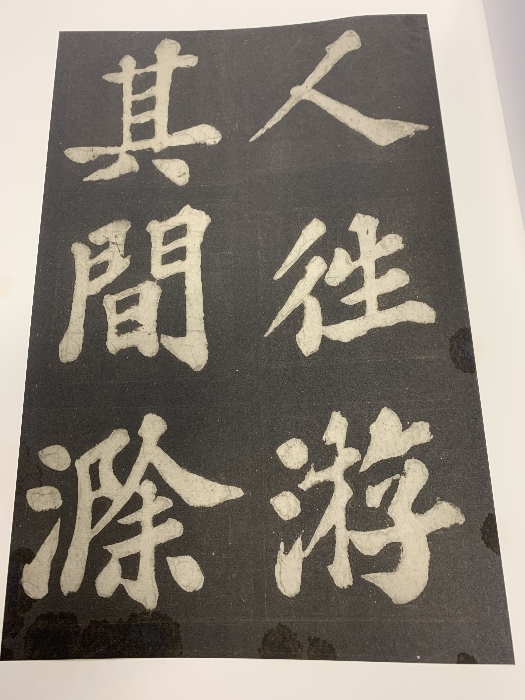 人徃游
其間滁